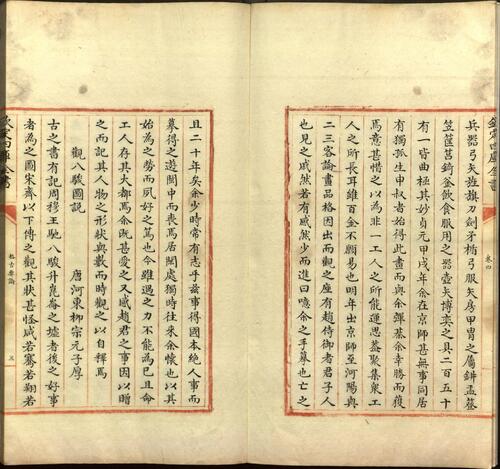 兵器弓矢旌旗刀劍矛楯弓服矢房甲胄之屬缾盂簦
笠筐筥錡釜飲食服用之器壺矢博奕之具二百五十
有一皆曲極其妙貞元甲戌年余在京師甚無事同居
有獨孤生申叔者始得此畫而與余彈棊余幸勝而獲
焉意甚惜之以為非一工人之所能運思蓋聚集衆工
人之所長耳雖百金不願易也明年出京師至河陽與
二三客論畫品格因出而觀之座有趙侍御者君子人
也見之戚然若有感然少而進曰噫余之手摹也亡之
卷四
且二十年矣余少時常有志乎茲事得國本絕人事而
摹得之遊閩中而喪焉居閒處獨時往來余懷也以其
始為之勞而夙好之篤也今雖遇之力不能為已且命
工人存其大都焉余既甚愛之又感趙君之事因以贈
之而記其人物之形狀與數而時觀之以自釋焉
觀八駿圖說
唐河東柳宗元子厚
古之書有記周穆王馳八駿升崑崙之墟者後之好事
者為之圖宋齊以下傳之觀其狀甚怪咸若騫若翔若